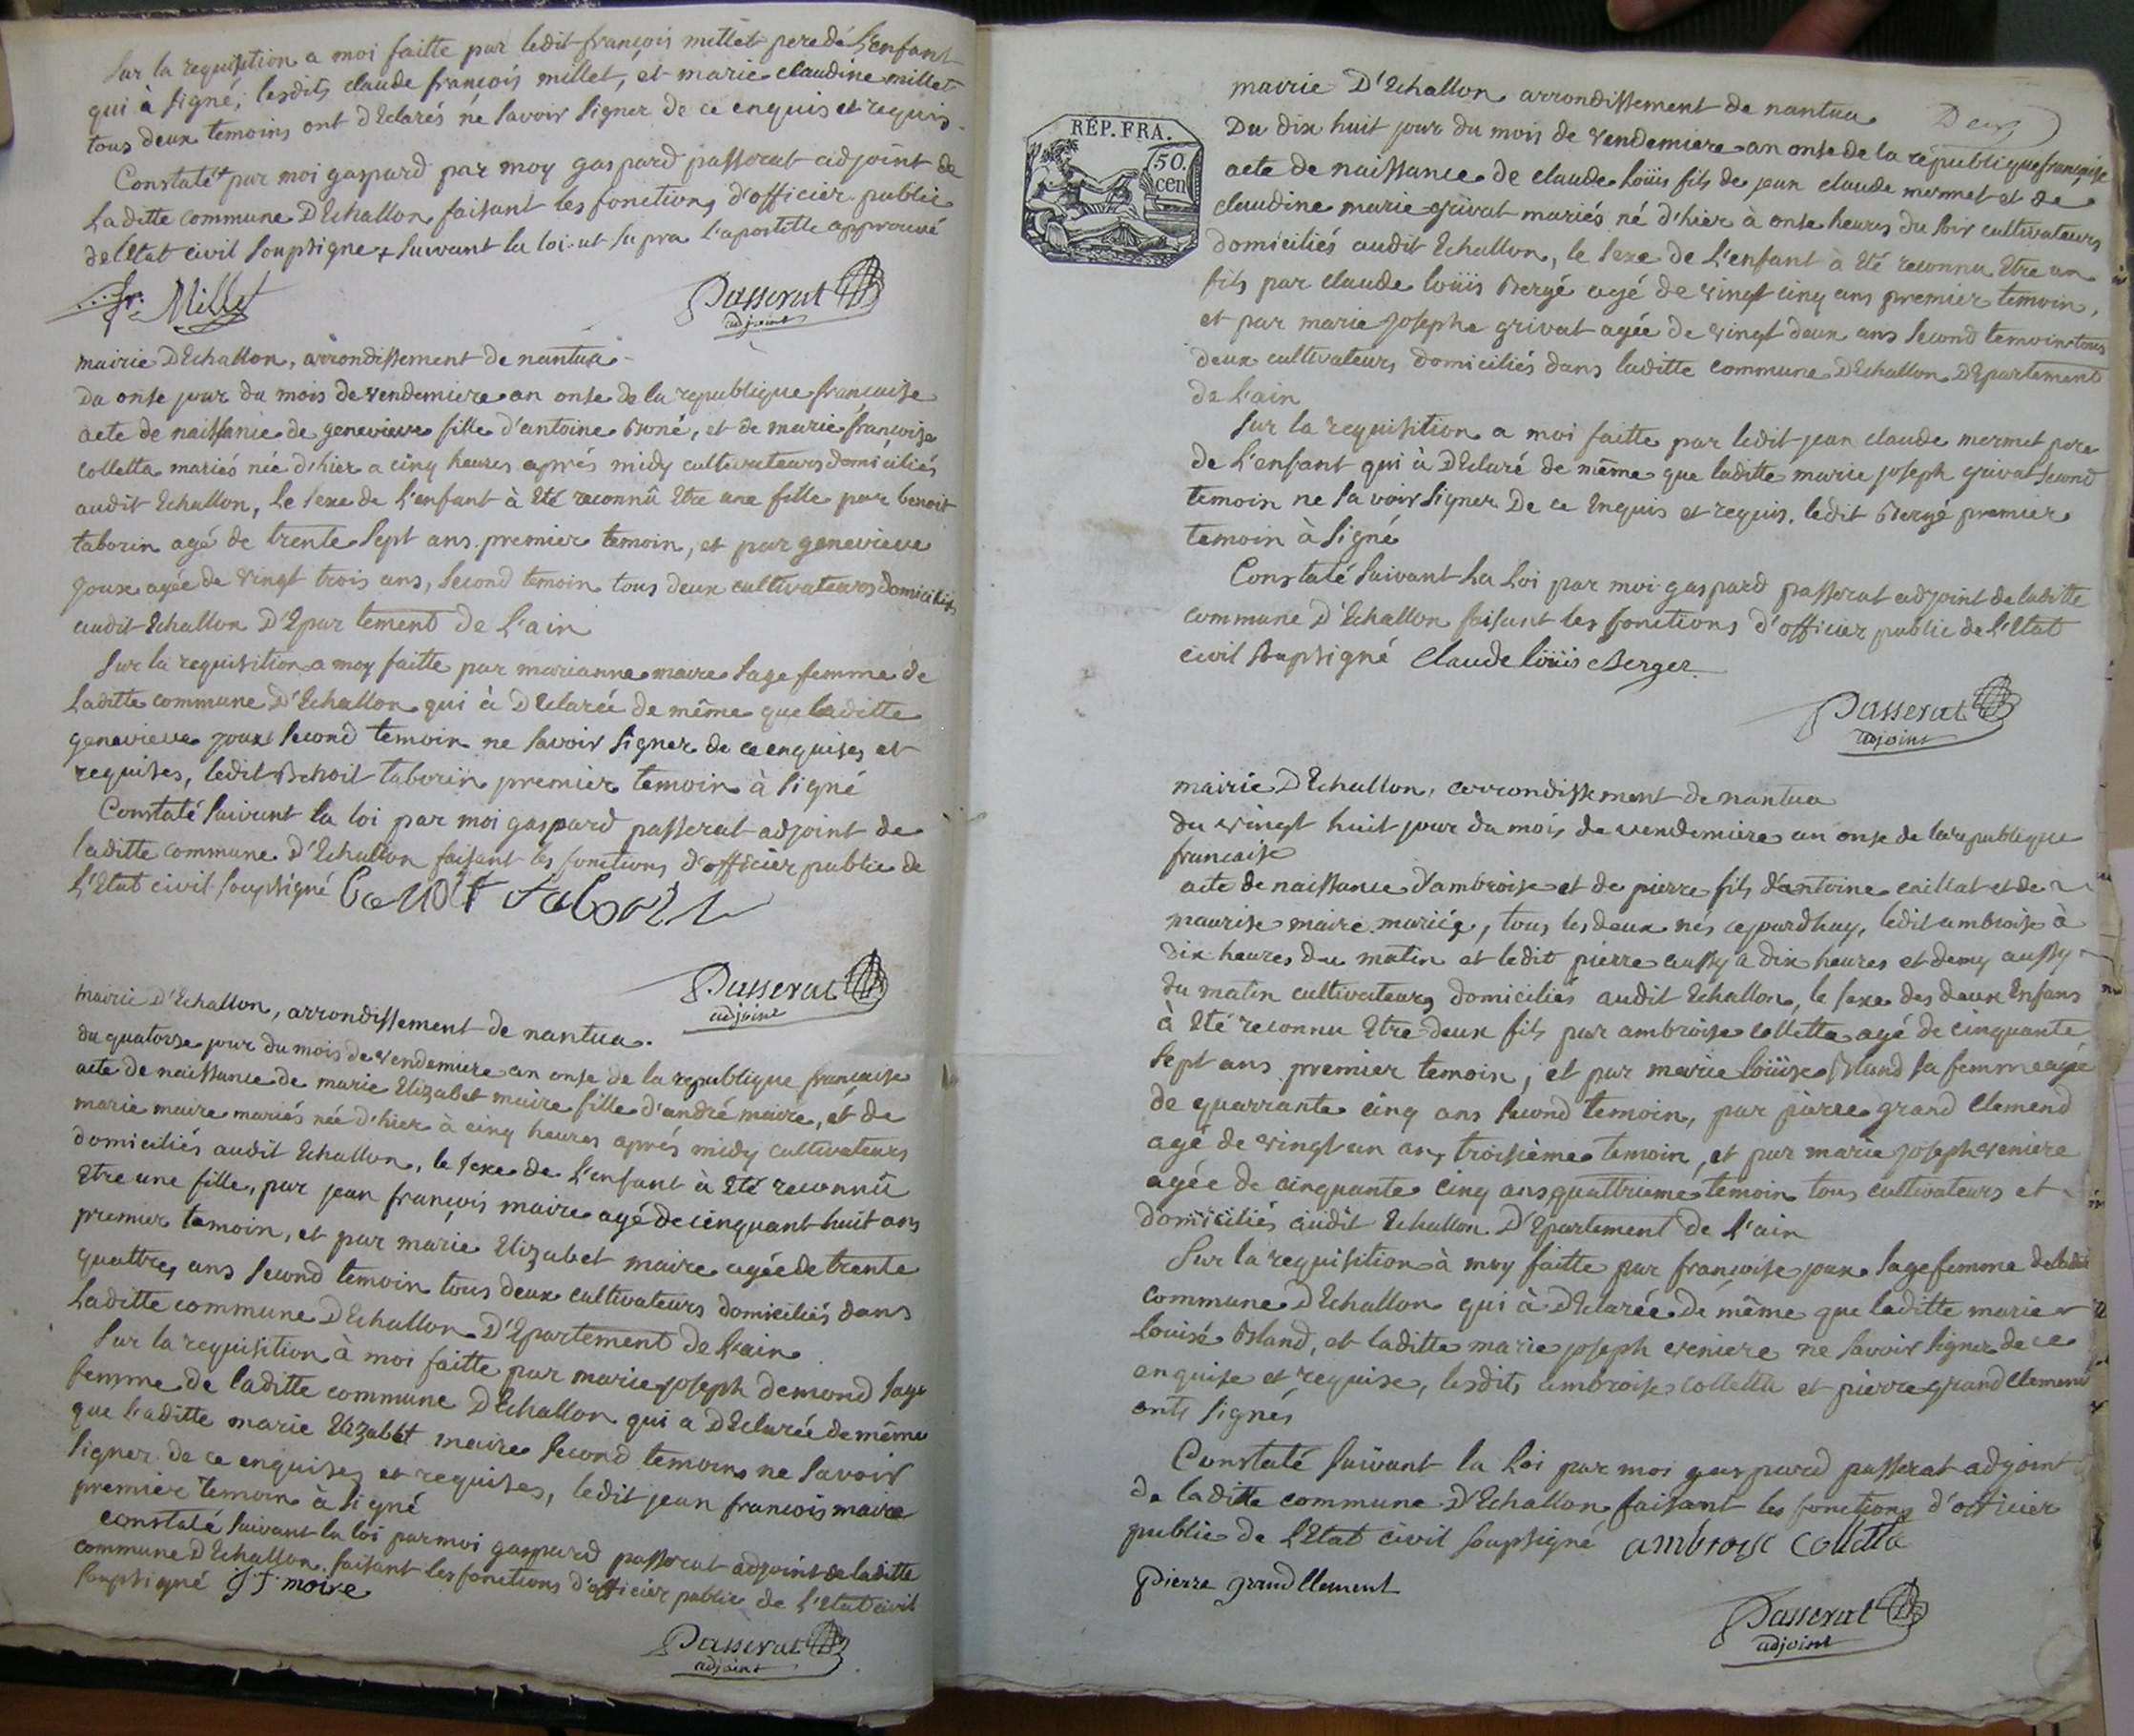 Sur la requisition a moi faitte par ledit françois millet pere dé L'enfant
qui à signé; lesdits claude françois millet, et marie claudine millet
tous deux temoins ont dEclarés né savoir signer de ce enquis et requis
Constaté + par moi gaspard par moy gaspard passerat adjoint de
Laditte commune DEchallon faisant les fonctions d'officier public
de lEtat civil soupsigne + suivant la loi ut supra l'apostille approuvé
fr. Millet
Passerat
adjoint
mairie DEchallon, arrondissement de nantua
Du onse jour du mois de vendemiere an onse de la republique française
acte de naissance de genevieve fille d'antoine Boné, et de marie françoise
Colletta mariés née d'hier a cinq heures aprés midy cultivateurs domiciliés
audit Echallon, Le sexe de L'enfant à Eté reconnû Etre une fille par benoit
taborin agé de trente sept ans premier temoin, et par genevieve
Joux agée de vingt trois ans, second temoin tous deux cultivateurs domiciliés
audit Echallon D'Epartement de L'ain
Sur la requisition a moy faitte par marianne maire sage femme de
Laditte commune D'Echallon qui à DEclarée de même que laditte
genevieve joux second temoin ne savoir signer de ce enquises et
requises, ledit Benoit taborin premier temoin à signé
Constaté suivant la loi par moi gaspard passerat adjoint de
laditte commune D'Echallon faisant les fonctions d'officier public de
L'Etat civil soupsigné benoit taborin
Passerat
adjoint
mairie D'Echallon, arrondissement de nantua.
du quatorse jour du mois de vendemiere an onse de la republique française
acte de naissance de marie Elizabet maire fille d'andré maire, et de
marie maire mariés née d'hier à cinq heures aprés midy cultivateurs
domiciliés audit Echallon, le sexe de L'enfant à Eté reconnû
Etre une fille, par jean françois maire agé de cinquant huit ans
premier temoin, et par marie Elizabet maire agée de trente
quattre ans second temoin tous deux cultivateurs domiciliés dans
Laditte commune DEchallon D'Epartement de L'ain
Sur la requisition à moi faitte par marie joseph demond sage
femme de laditte commune DEchallon qui a DEclarée de même
que laditte marie Elizabet maire second temoin ne savoir
signer de ce enquises et requises, ledit jean françois maire
premier temoin à signé
constaté suivant la loi par moi gaspard passerat adjoint de laditte
commune DEchallon faisant les fonctions d'officier public de l'Etat civil
soupsigné J f moire
Passerat
adjoint
mairie D'Echallon arrondissement de nantua
Deux
REP. FRA.
50.
cen
Du dix huit jour du mois de vendemiere an onse de la republique française
acte de naissance de claude loüis fils de jean claude mermet et de
claudine marie grivat mariés né d'hier à onse heures du soir cultivateurs
domiciliés audit Echallon, le sexe de L'enfant à Eté reconnu Etre un
fils par claude loüis Bergé agé de vingt cinq ans premier temoin,
et par marie Josephe grivat agée de vingt deux ans second temoin tous
deux cultivateurs domiciliés dans laditte commune DEchallon DEpartement
de L'ain
Sur la requisition a moi faitte par ledit jean claude mermet pere
de L'enfant qui à DEclaré de même que laditte marie joseph grivat second
temoin ne savoir signer De ce Enquis et requis. ledit Bergé premier
temoin à signé
Constaté suivant La Loi par moi gaspard passerat adjoint de laditte
commune D'Echallon faisant les fonctions d'officier public de l'Etat
civil soupsigné Claude loüis Berger
Passerat
adjoint
mairie DEchallon, arrondissement de nantua
du vingt huit jour du mois de vendemiere an onse de la republique
francaise
acte de naissance d'ambroise et de pierre fils d'antoine caillat et de
maurise maire mariés, tous les deux nés cejourdhuy, ledit ambroise à
dix heures du matin et ledit pierre aussy a dix heures et demy aussy
du matin cultivateurs domiciliés audit Echallon, le sexe des deux Enfans
à Eté reconnu Etre deux fils par ambroise colletta agé de cinquante
sept ans premier temoin, et par marie loüise Bland sa femme agée
de quarrante cinq ans second temoin, par pierre grand Clemend
agé de vingt un an, troisième temoin, et par marie joseph veniere
agée de cinquante cinq ans quattrieme temoin tous cultivateurs et
domiciliés audit Echallon D'Epartement de l'ain
Sur la requisition à moy faitte par françoise joux sage femme de laditte
commune DEchallon qui à DEclarée De même que laditte marie
Louise Bland, et laditte marie joseph veniere ne savoir signer de ce
enquise et requise, lesdits ambroise colletta et pierre grand Clemend
onts signés
Constaté suivant la Loi par moi gaspard passerat adjoint
de laditte commune D'Echallon faisant les fonctions d'officier
public de L'Etat civil soupsigné ambroise Colletta
pierre grand Clement
Passerat
adjoint